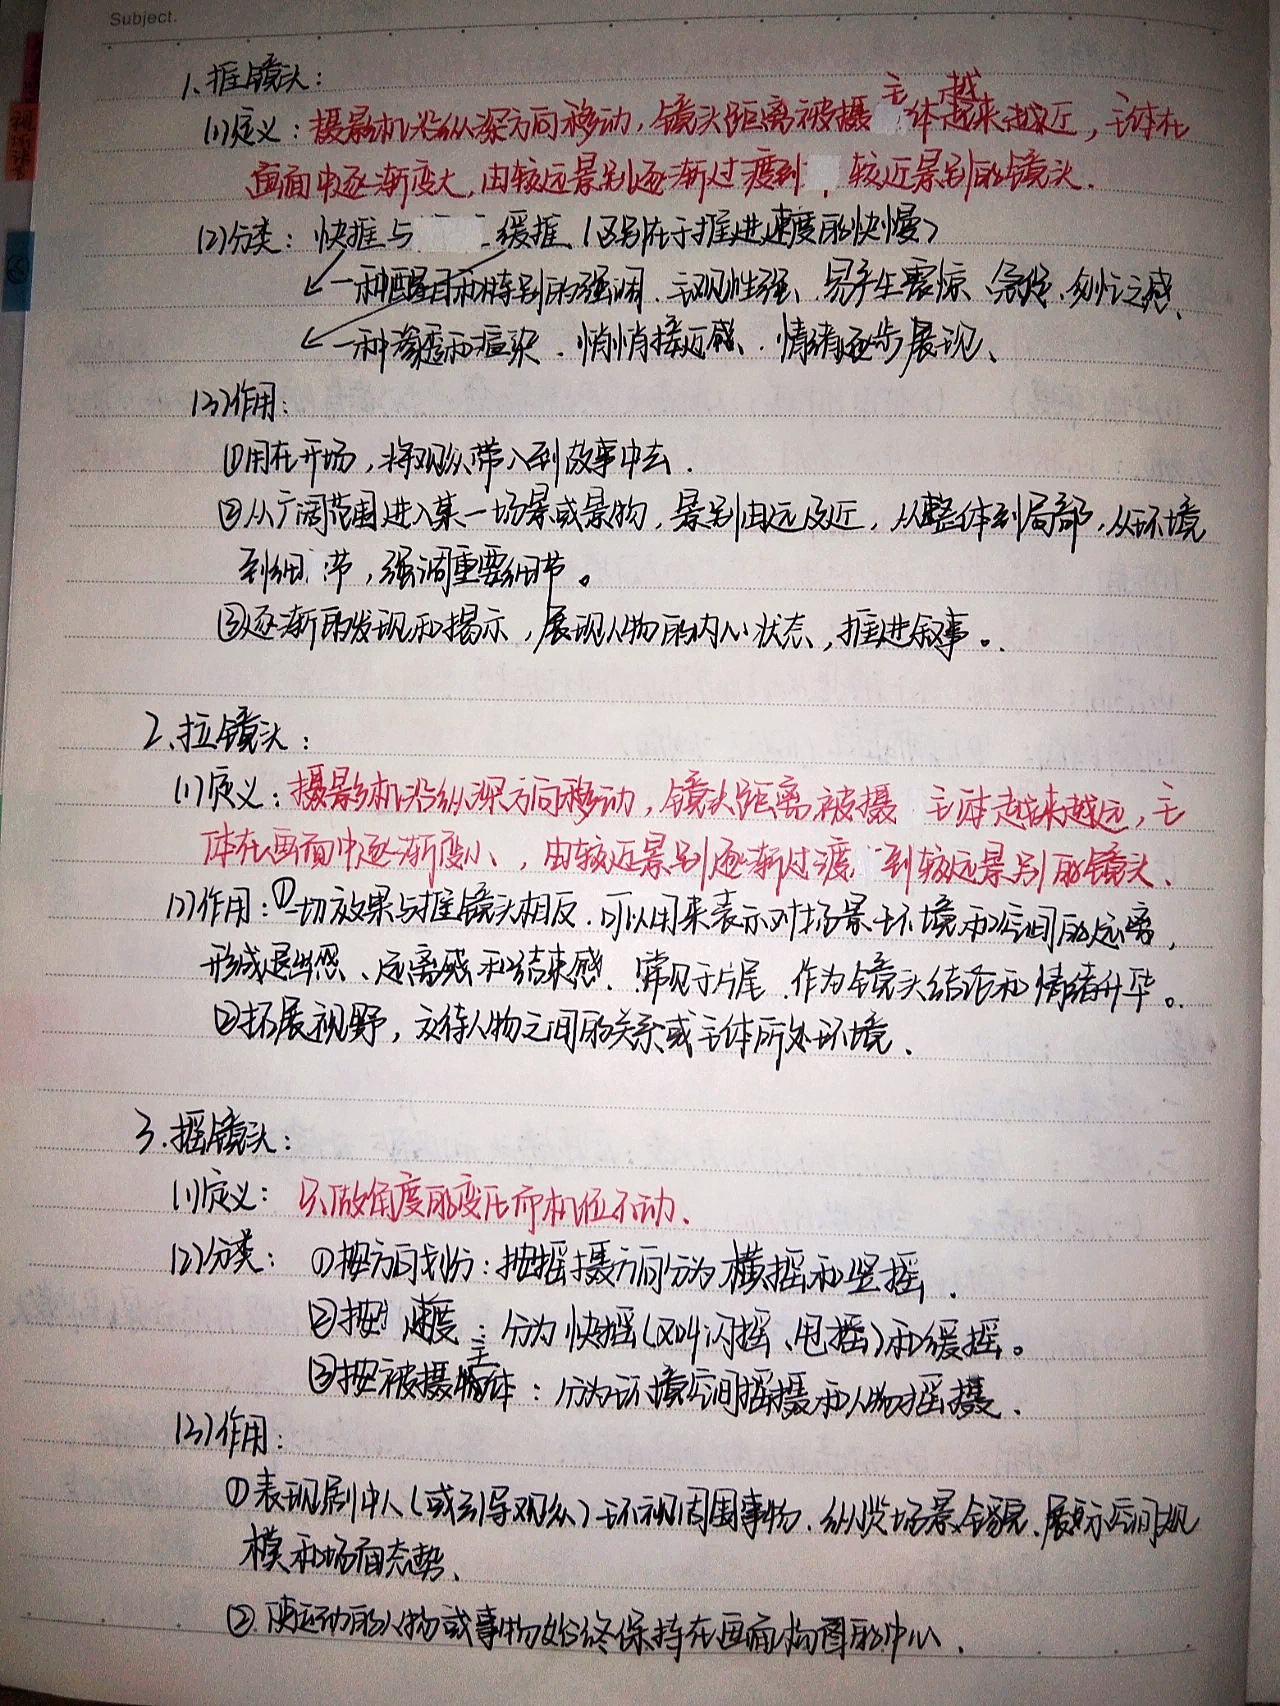 Subject.
1、推镜头：
(1)定义：摄影机沿纵深方向移动，镜头距离被摄主体越来越近，主体在
画面中逐渐变大，由较远景别逐渐过渡到较近景别的镜头.
(2)分类：快推与缓推（区别在于推进速度的快慢）
一种醒目和特别的强调、主观性强、易产生震惊、急促、匆忙之感、
一种渗透和渲染．悄悄接近感、．情绪逐步展现、
(3)作用：
①用在开场，将观众带入到故事中去．
②从广阔范围进入某一场景或景物，景别由远及近，从整体到局部，从环境
到细节，强调重要细节。
③逐渐的发现和揭示，展现人物的内心状态、，推进叙事。
2、拉镜头：
(1)定义：摄影机沿纵深方向移动，镜头距离被摄主体越来越远，主
体在画面中逐渐变小、，由较近景别逐渐过渡到较远景别的镜头、
(2)作用：①一切效果与推镜头相反．可以用来表示对场景环境和空间的远离，
形成退出感、远离感和结束感．常见于片尾．作为镜头结语和情绪升华。
②拓展视野，交待人物之间的关系或主体所处环境．
3.摇镜头：
(1)定义：只做角度的变化而机位不动、
(2)分类：①按方向划分：按摇摄方向分为横摇和竖摇．
②按速度：分为快摇（又叫闪摇、甩摇）和缓摇。
③按被摄主体：分为环境空间摇摄和人物摇摄．
(3)作用：
①表现剧中人（或引导观众）环视周围事物．纵览场景全貌、展示空间规
模和场面态势、
②使运动的人物或事物始终保持在画面构图的中心．